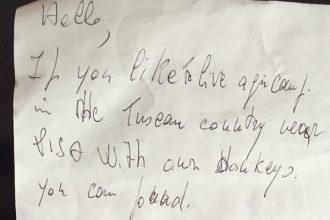 Hello,
If you like to live agricamp.
in the Tuscan country near
PISA with own donkeys.
you can found.